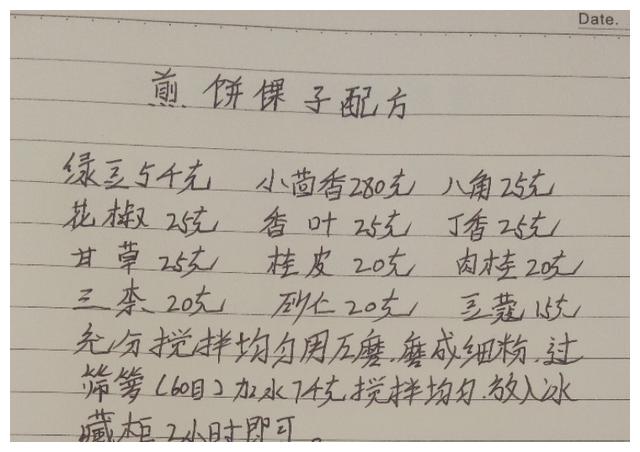 Date.
煎饼馃子配方
绿豆5千克 小茴香280克 八角25克
花椒25克 香叶25克 丁香25克
甘草25克 桂皮20克 肉桂20克
三柰20克 砂仁20克 豆蔻15克
充分搅拌均匀用石磨.磨成细粉.过
筛箩(60目)加水7千克.搅拌均匀.放入冰
藏柜2小时即可。